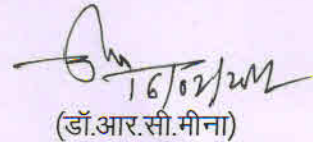 16/02/2012
(डॉ.आर.सी.मीना)